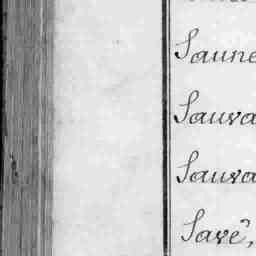 Saune
Sauva
Sauva
Savê,